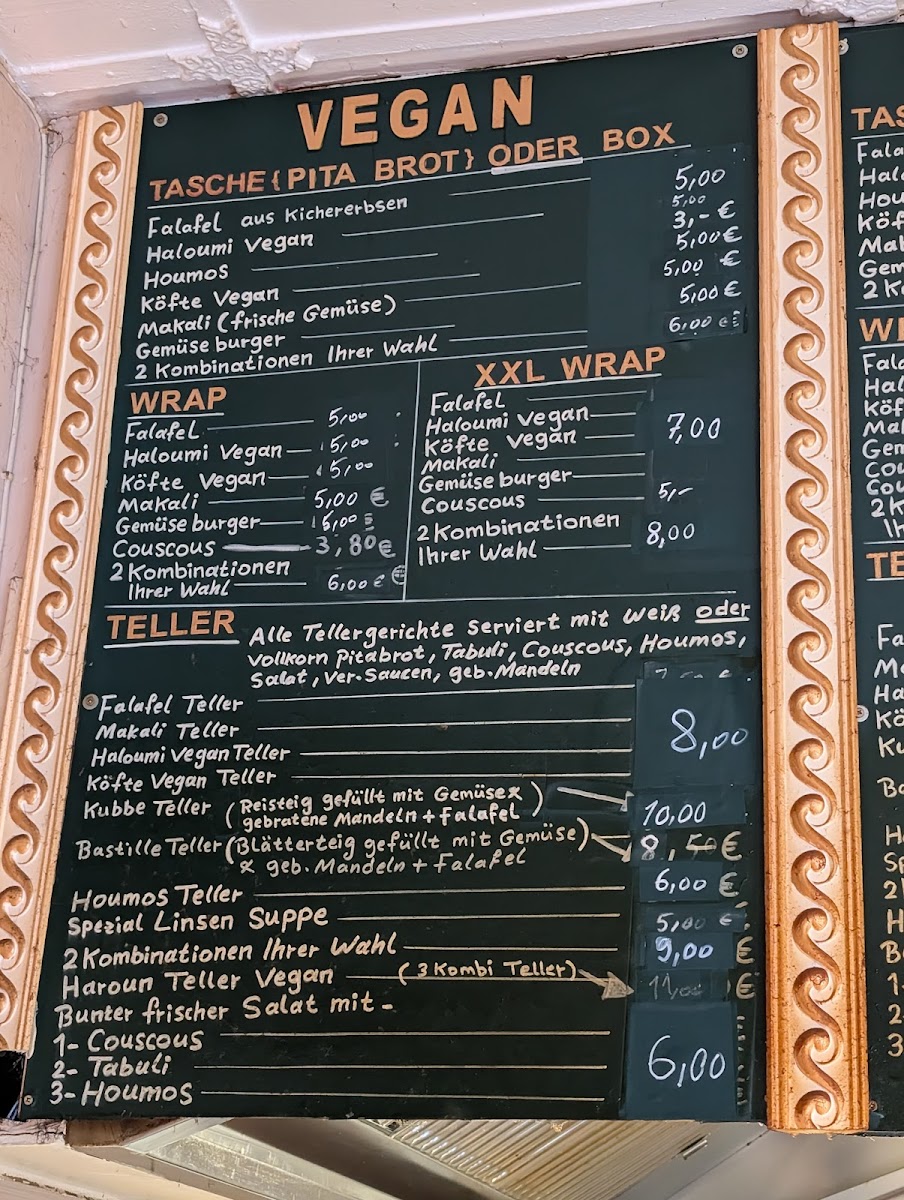 VEGAN
TASCHE {PITA BROT} ODER BOX
Falafel aus Kichererbsen 5,00
Haloumi Vegan 5,00
Houmos 3,- €
Köfte Vegan 5,00€
Makali (frische Gemüse) 5,00 €
Gemüse burger 5,00€
2 Kombinationen Ihrer Wahl 6,00 €
WRAP
Falafel 5,00
Haloumi Vegan 5,00
Köfte Vegan 5,00
Makali 5,00 €
Gemüse burger 5,00
Couscous 3,80€
2 Kombinationen
Ihrer Wahl 6,00 €
XXL WRAP
Falafel
Haloumi Vegan
Köfte Vegan 7,00
Makali
Gemüse burger
Couscous 5,-
2 Kombinationen
Ihrer Wahl 8,00
TELLER
Alle Tellergerichte Serviert mit weiß oder
Vollkorn Pitabrot, Tabuli, Couscous, Houmos,
Salat, Ver. Saucen, geb. Mandeln
Falafel Teller
Makali Teller 8,00
Haloumi Vegan Teller
Köfte Vegan Teller
Kubbe Teller (Reisteig gefüllt mit Gemüse &
gebratene Mandeln + Falafel) 10,00
Bastille Teller (Blätterteig gefüllt mit Gemüse) 8,50€
& geb. Mandeln + Falafel
Houmos Teller 6,00 €
Spezial Linsen Suppe 5,00 €
2 Kombinationen Ihrer Wahl 9,00 €
Haroun Teller Vegan (3 Kombi Teller) 11,00 €
Bunter frischer Salat mit -
1- Couscous
2- Tabuli 6,00
3- Houmos